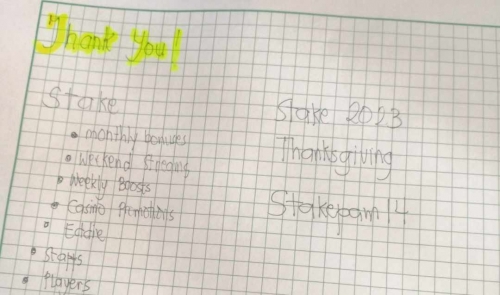 Thank You!
Stake
• monthly bonuses
• Weekend Streams
• Weekly Boosts
• Casino Promotions
• Eddie
• Staffs
• Players
Stake 2023
Thanksgiving
Stakepam14